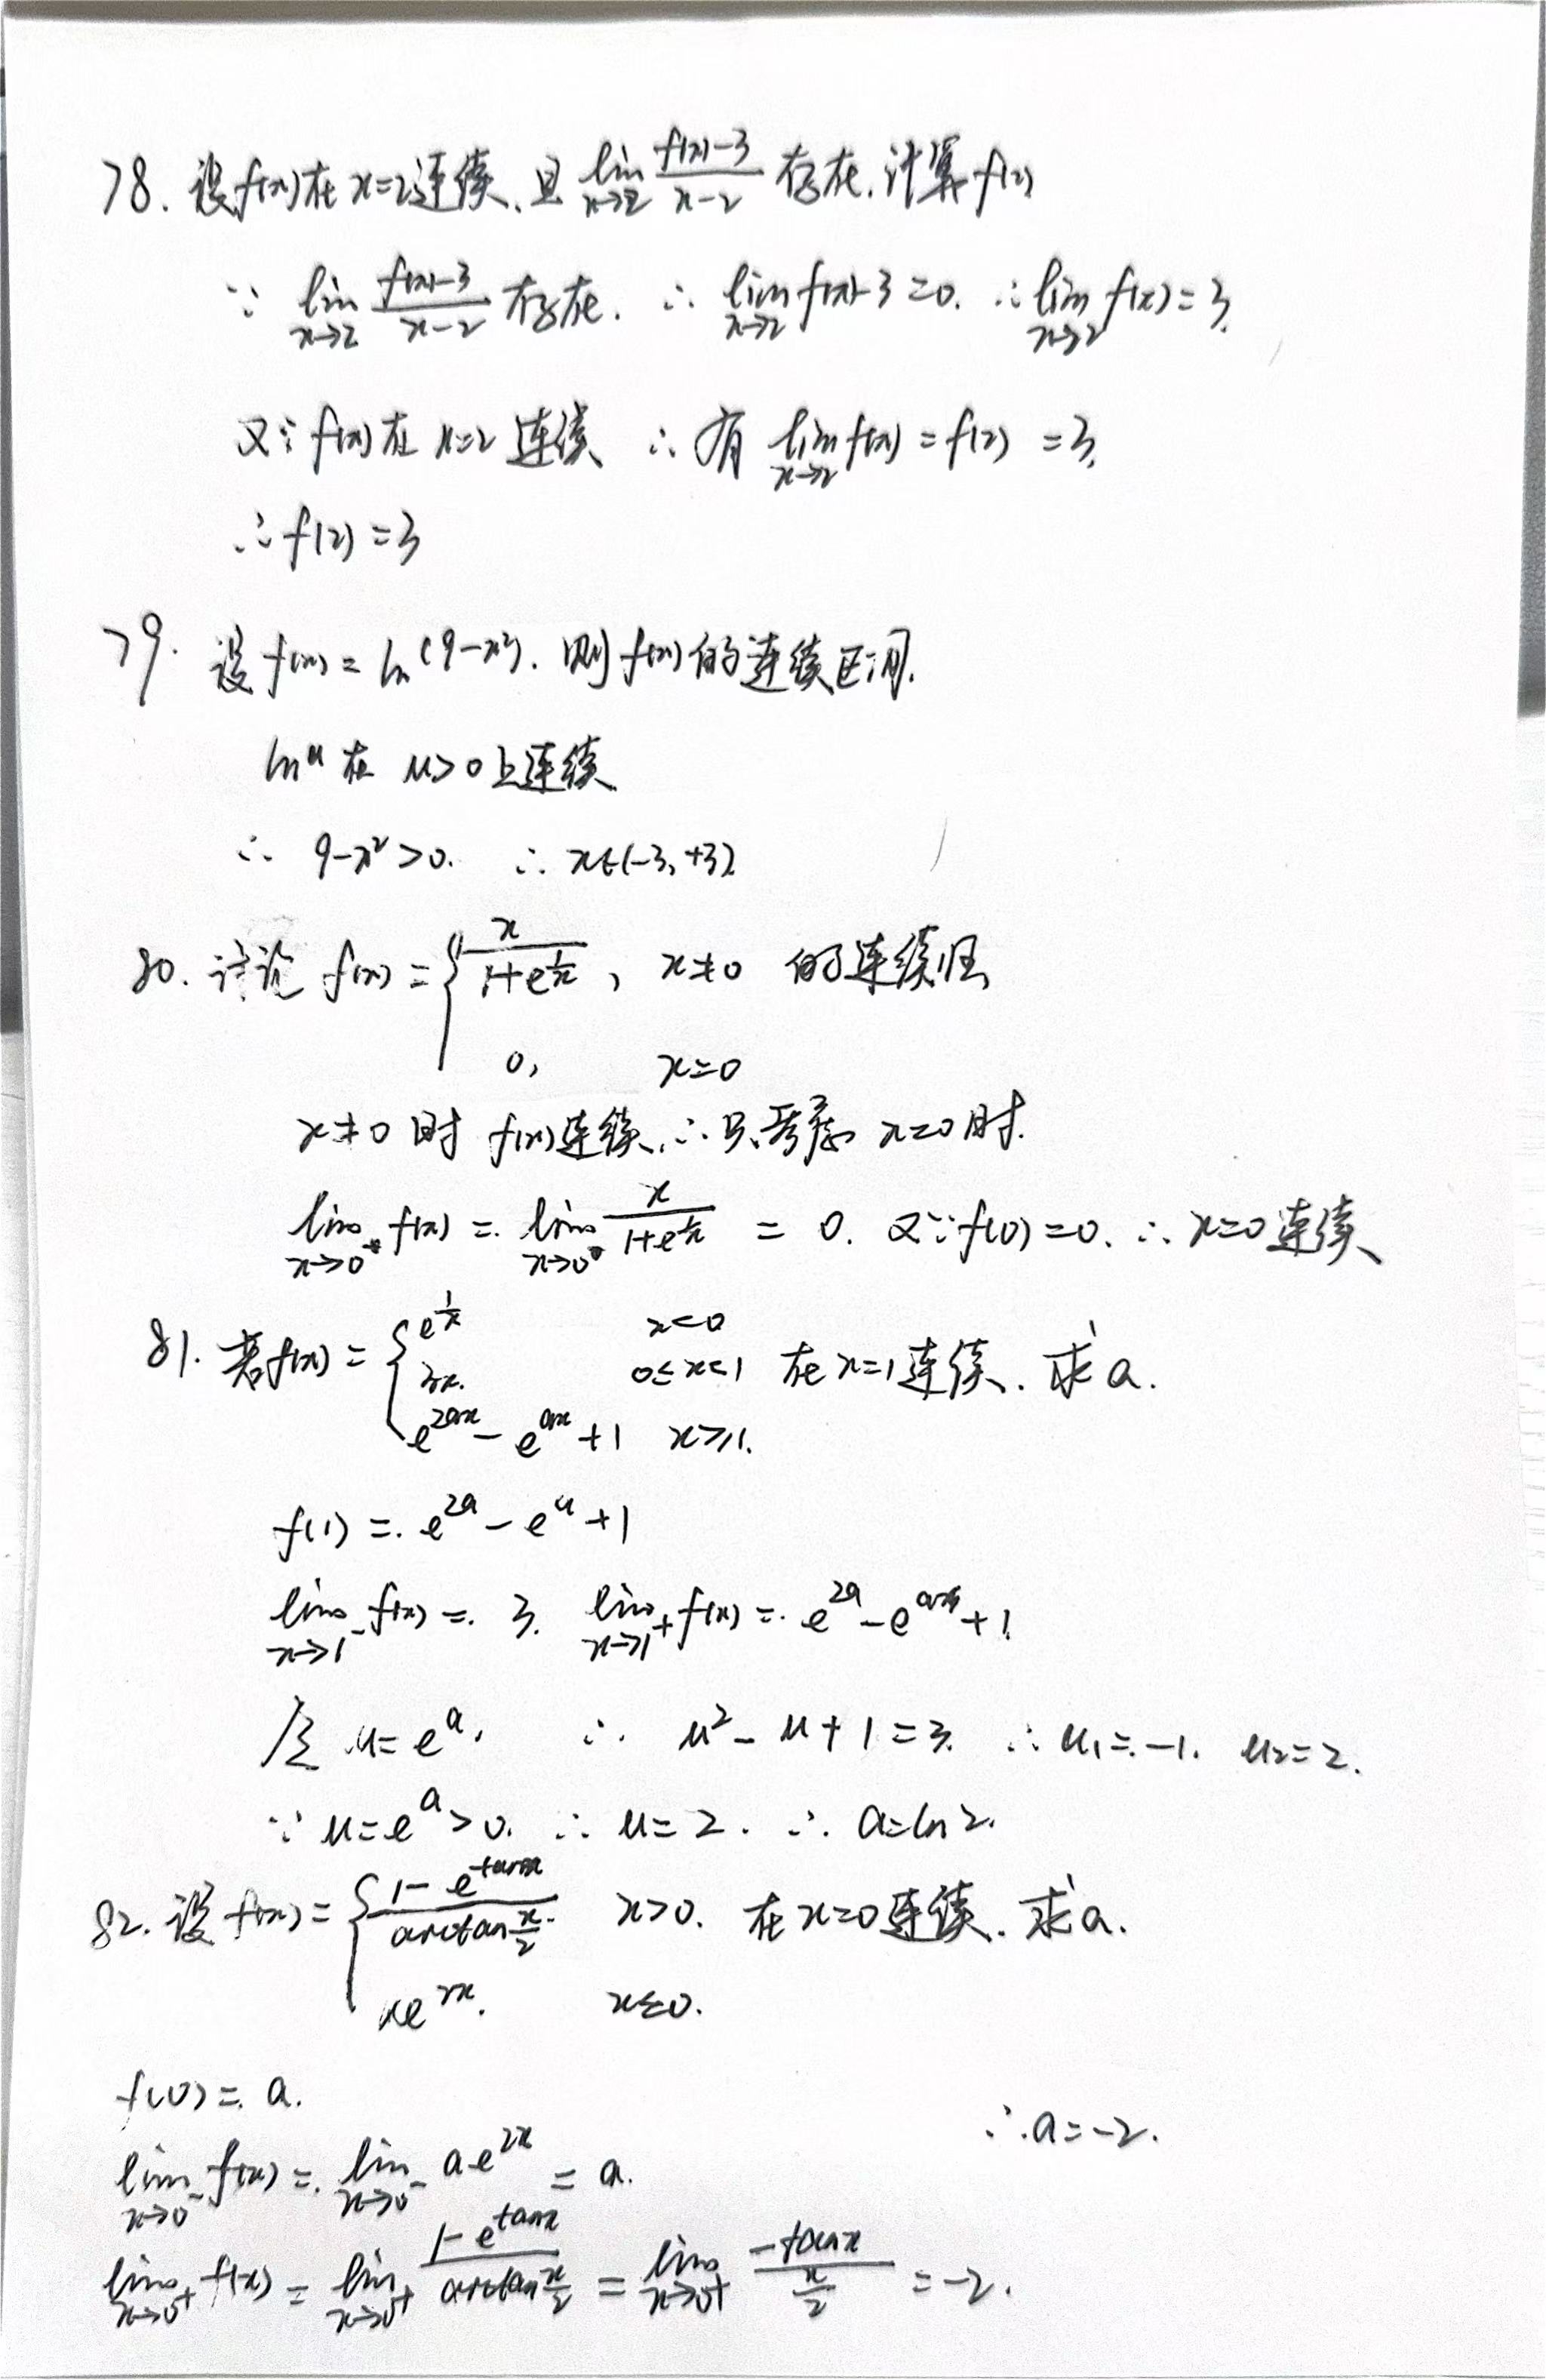 78. 设f(x)在x=2连续,且 lim_{x→2} (f(x)-3)/(x-2) 存在,计算f(2)
∵ lim_{x→2} (f(x)-3)/(x-2) 存在. ∴ lim_{x→2} f(x)-3=0. ∴ lim_{x→2} f(x)=3.
又∵ f(x)在 x=2 连续 ∴ 有 lim_{x→2} f(x) = f(2) =3.
∴ f(2)=3
79. 设 f(x) = ln(9-x²). 则 f(x) 的连续区间.
ln u 在 u>0上连续
∴ 9-x²>0. ∴ x∈(-3,+3)
80. 讨论 f(x) = { x/(1+e^{1/x}), x≠0 的连续性
0, x=0
x≠0时 f(x)连续,∴只考虑 x=0时.
lim_{x→0} f(x) = lim_{x→0} x/(1+e^{1/x}) = 0. 又∵f(0)=0. ∴ x=0连续
81. 若f(x) = { e^{1/x} x<0
3x. 0≤x<1 在x=1连续. 求a.
e^{2ax} - e^{ax} +1 x≥1.
f(1) = e^{2a} - e^{a} +1
lim_{x→1⁻} f(x) = 3. lim_{x→1⁺} f(x) = e^{2a} - e^{a} +1
令 u=e^{a}. ∴ u²-u+1=3. ∴ u₁=-1. u₂=2.
∵ u=e^{a}>0. ∴ u=2. ∴ a=ln2.
82. 设 f(x) = { (1-e^{tanx})/(arctan x/2) x>0. 在x=0连续. 求a.
ae^{2x}. x≤0.
f(0)=a.
∴a=-2.
lim_{x→0⁻} f(x) = lim_{x→0⁻} ae^{2x} = a.
lim_{x→0⁺} f(x) = lim_{x→0⁺} (1-e^{tanx})/(arctan x/2) = lim_{x→0⁺} (-tanx)/(x/2) = -2.